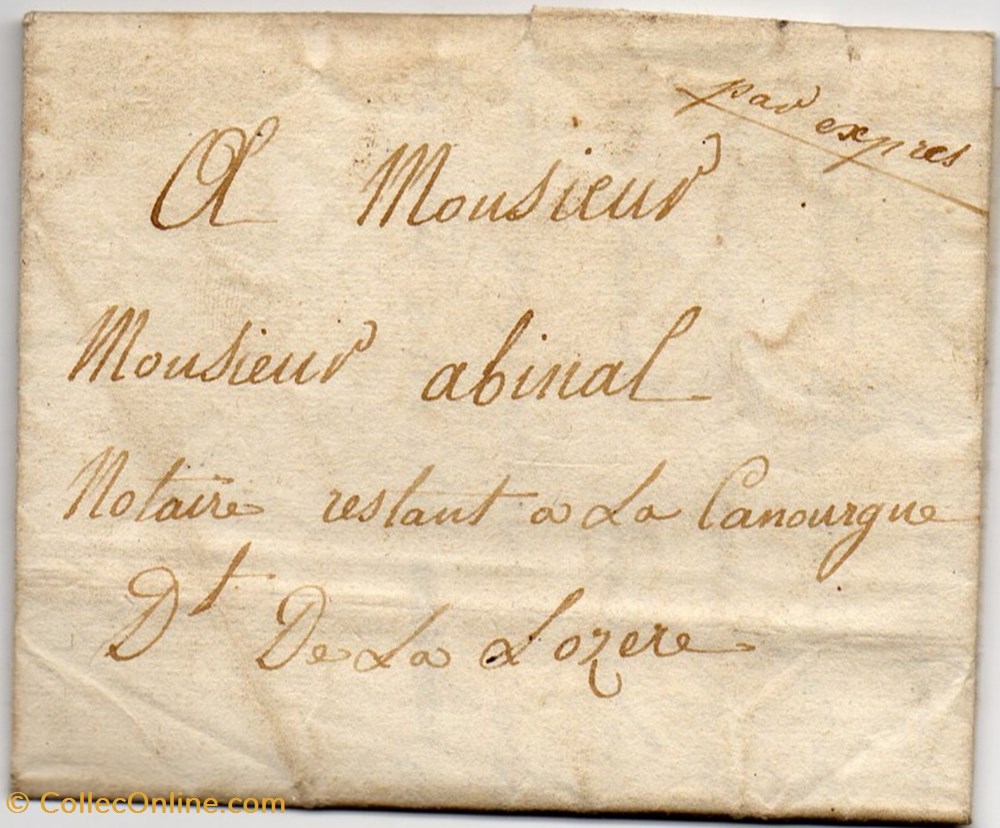 par expres
A Monsieur
Monsieur abinal
Notaire restant a La Canourgue
Dt De La Lozere
© CollecOnline.com